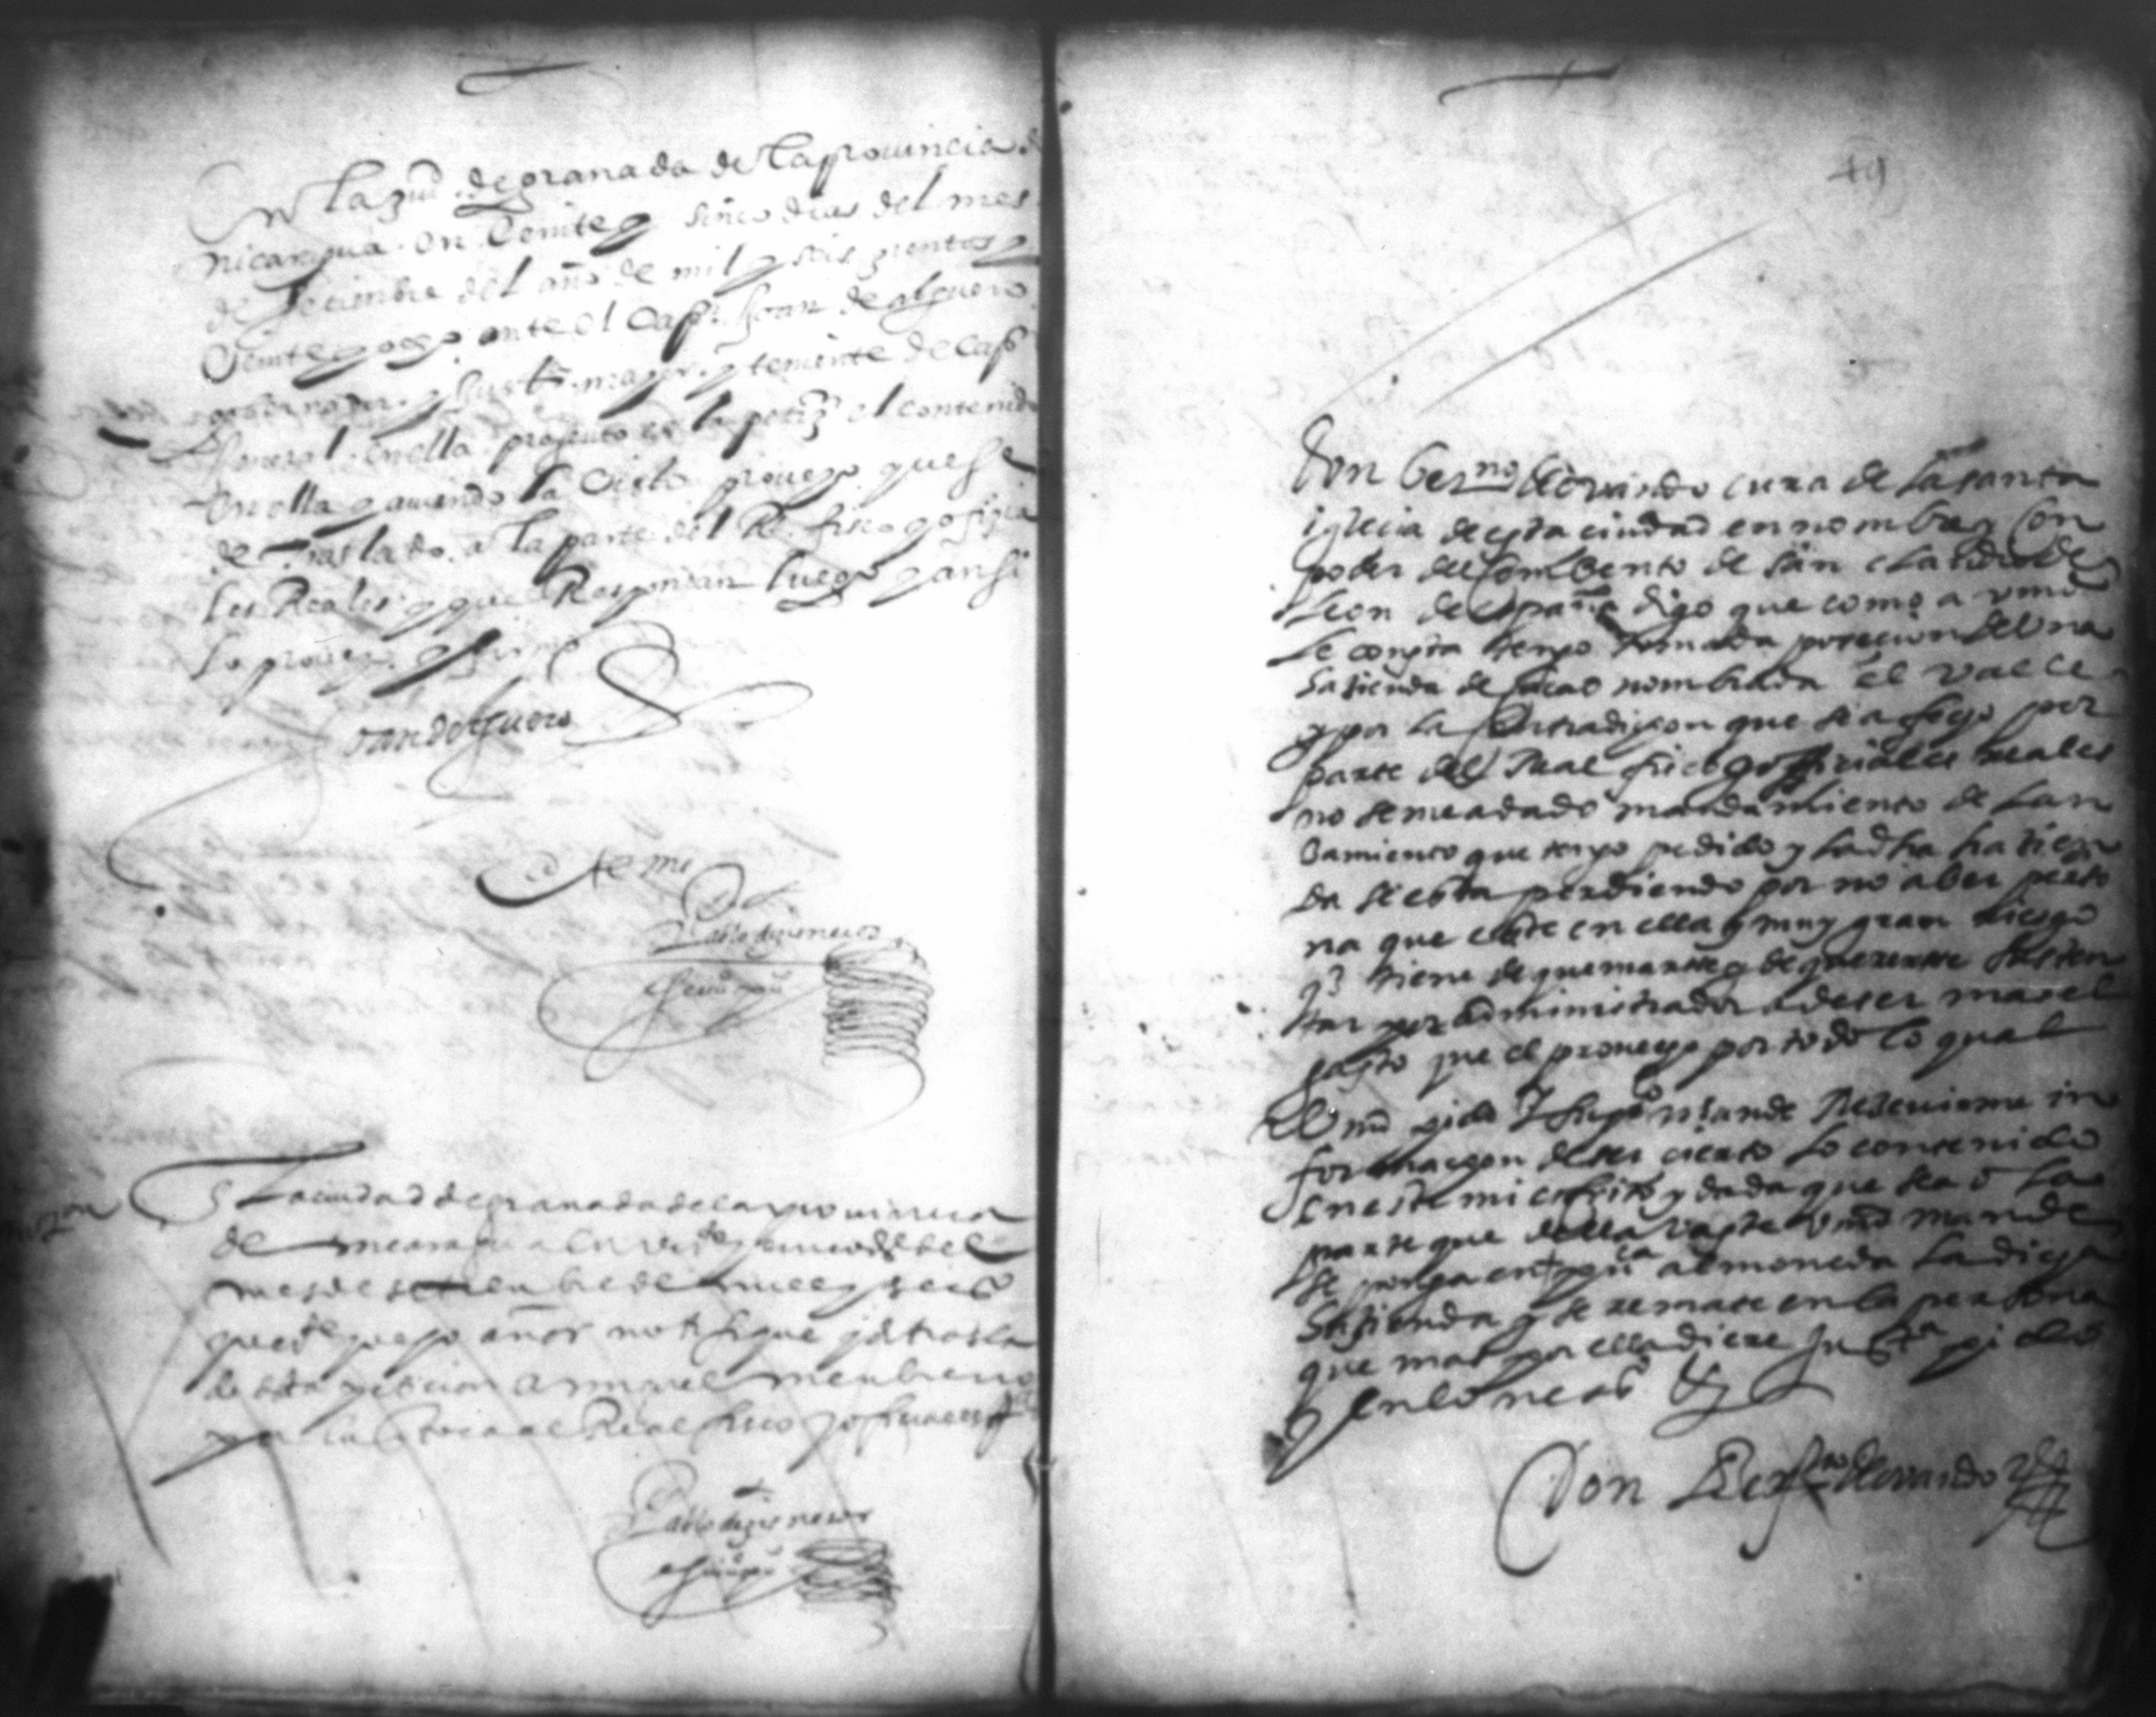 En la ziud de granada de la prouincia de
nicaragua. en Veinte y sinco dias del mes
de deciembre del año de mil y seis zientos y
Veinte y ocho. ante el Capn. Joan de alguero
gouernador. y Justa. mayor. y teniente de Capn
General. en ella. presento esta petizn el contenido
en ella y auiendola Visto proueyo. que se
de traslado. a la parte del Rl. fisco y ofizia
les Reales. y que Respondan luego y ansi
lo proueyo. y firmo
Juan de Alguero
Ante mi
Pablo de zisneros
escriuo puco
En la ciudad de granada de la prouincia
de nicaragua en veinte y cinco dias del
mes de deciembre de mill y seisos
y veinte y ocho años notifique y di trasla
do desta peticion a miguel
por lo que toca al Real fisco y oficiales Rs
Pablo de zisneros
escriuo puco
49
Don Gerno cura de la santa
iglecia de esta ciudad en nombre y con
poder del combento de san claudio de
Leon de españa digo que como a vmd
le consta tengo tomada posecion de una
hasienda de cacao nombrada el valle
y por la contradicion que se a fecho por
parte del Real fisco y officiales reales
no se me a dado mandamiento de lan
samiento que tengo pedido y la dha hasien
da se esta perdiendo por no aber perso
na que este en ella y muy gran riesgo
q tiene de quemarse y de quererse susten
tar por administrador a de ser mas el
gasto que el prouecho por todo lo qual
A Vmd pido y supco mande Reseuirme in
formacion de ser cierto lo contenido
en este mi escrito y dada que sea o la
parte que della vaste Vmd mande
se ponga en puca almoneda la dicha
hasienda y se remate en la persona
que mas por ella diere Justa pido
y en lo neso &
Don